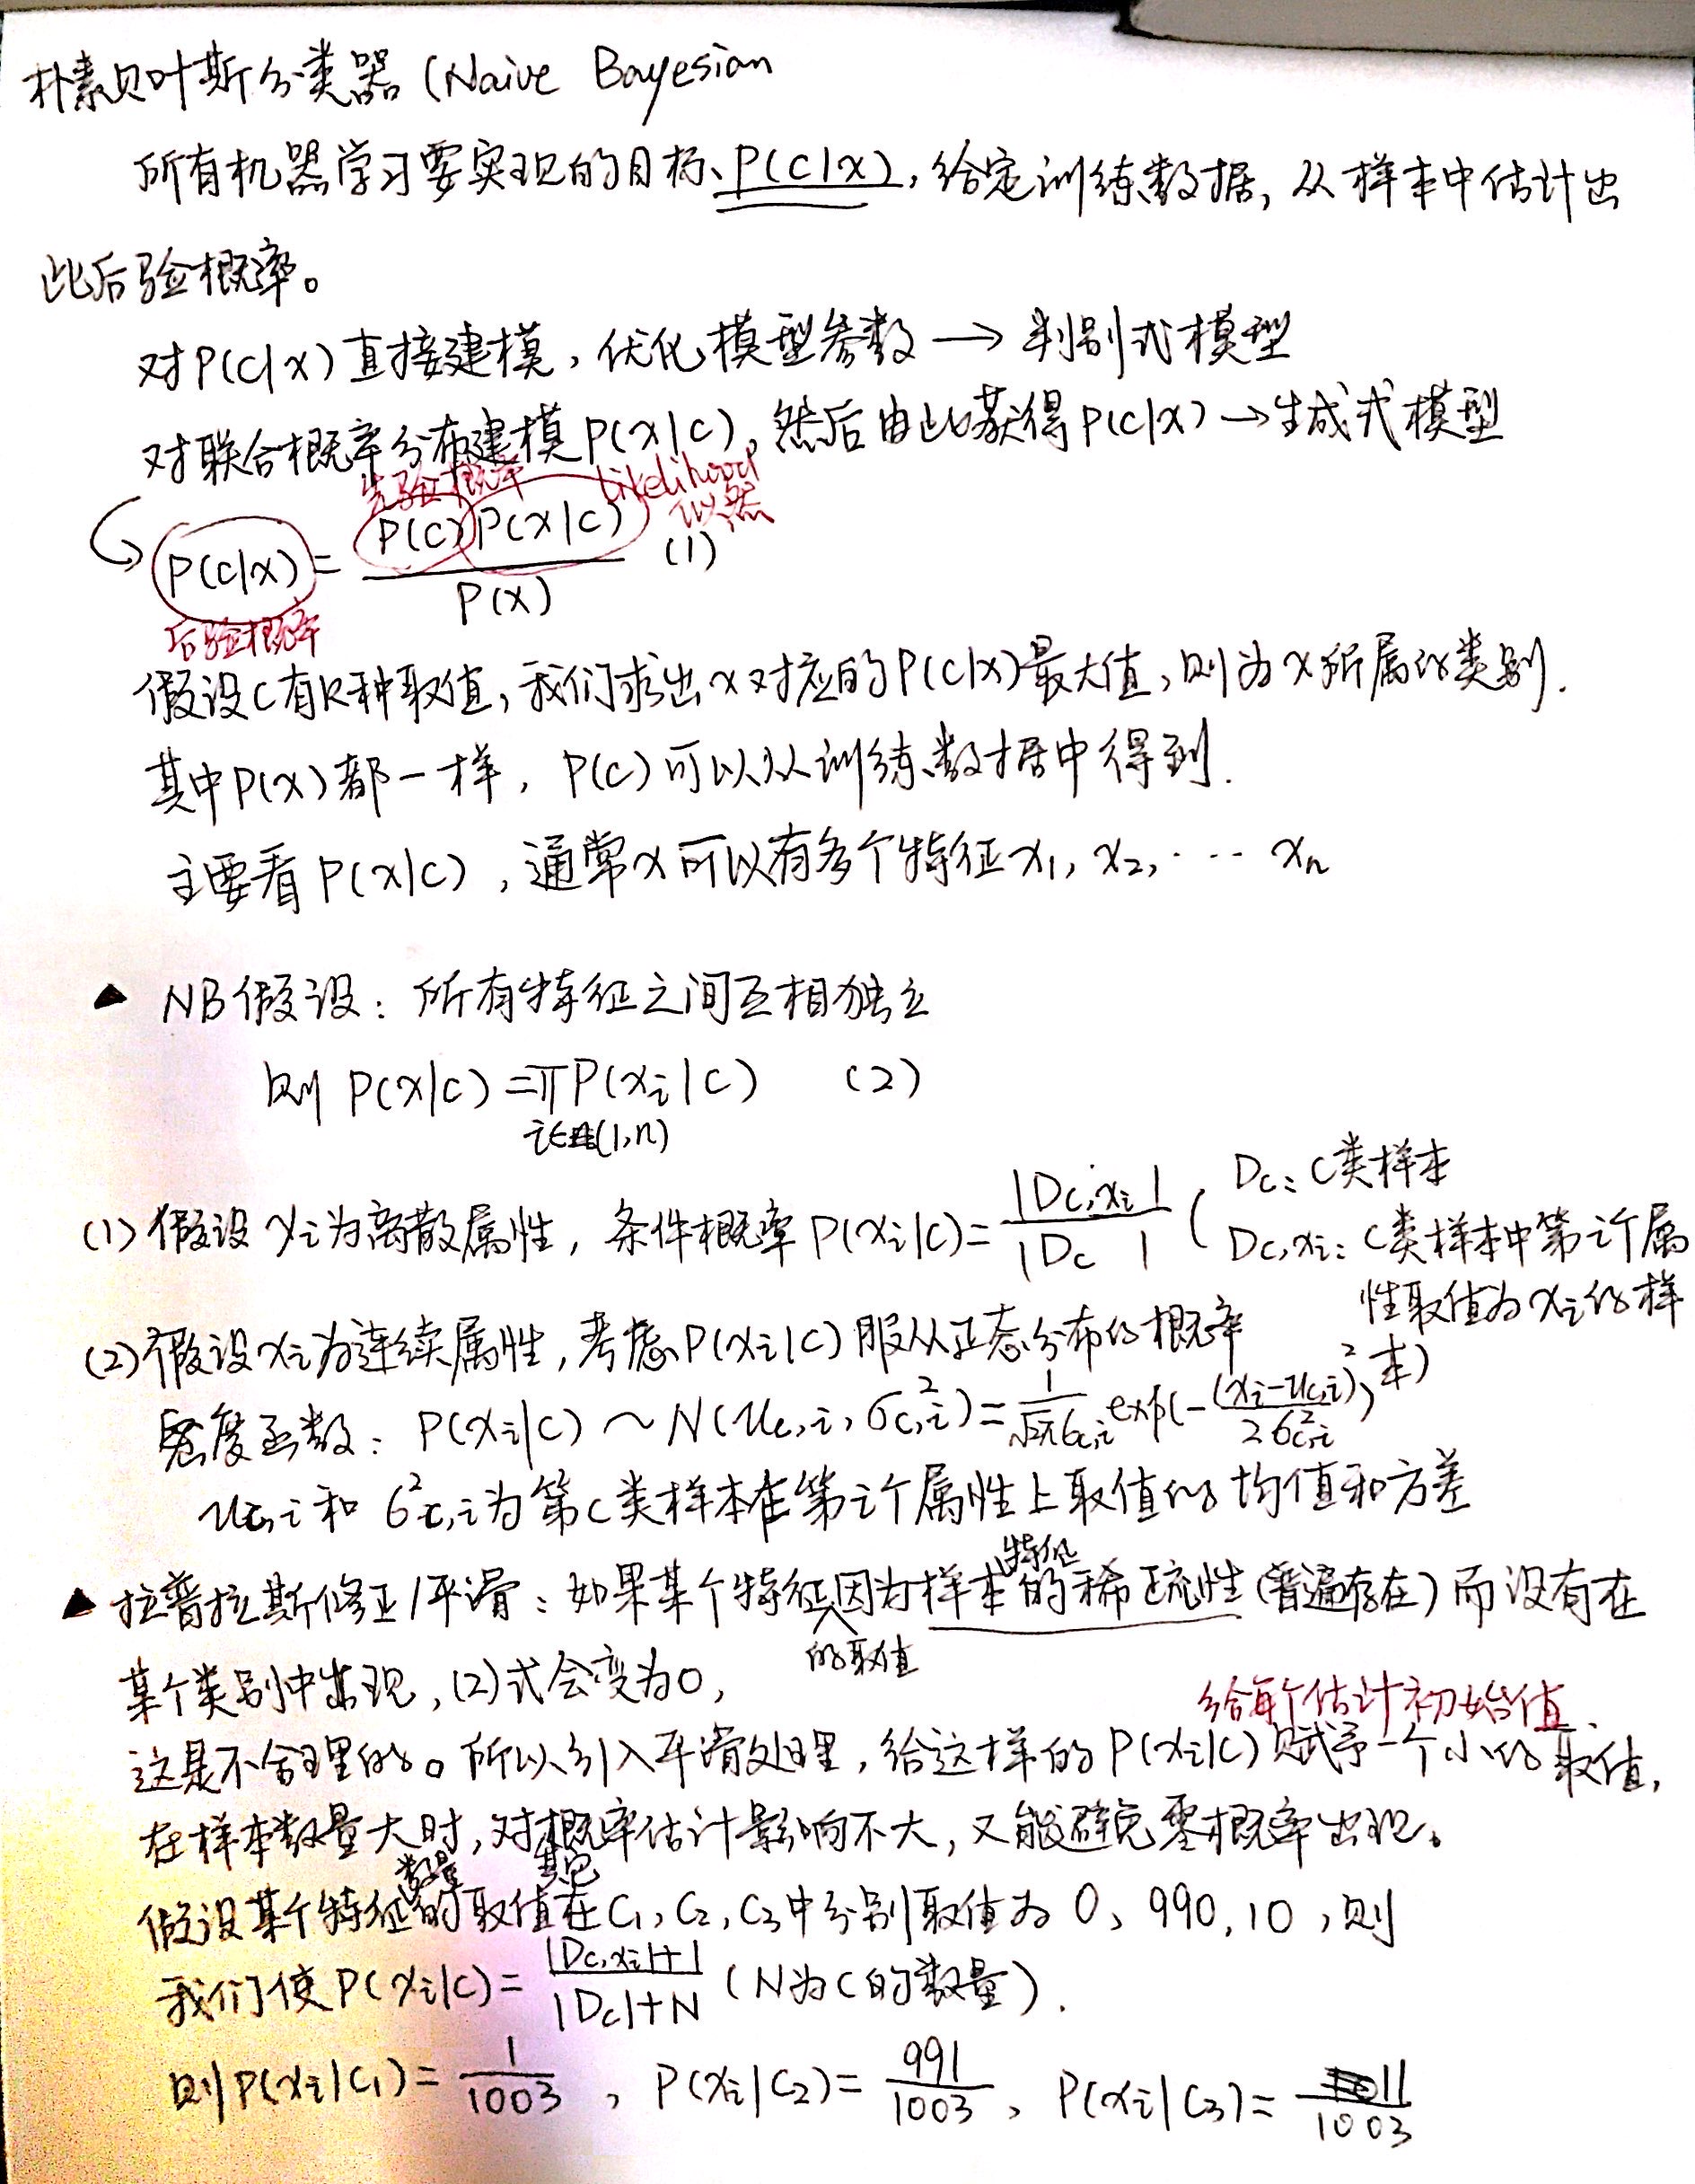 朴素贝叶斯分类器 (Naive Bayesian
所有机器学习要实现的目标、P(c|x), 给定训练数据, 从样本中估计出
此后验概率。
对P(c|x)直接建模, 优化模型参数 → 判别式模型
对联合概率分布建模P(x|c), 然后由此获得P(c|x) → 生成式模型
先验概率 Likelihood
似然
P(c|x) = P(c)P(x|c) / P(x) (1)
后验概率
假设C有K种取值, 我们求出x对应的P(c|x)最大值, 则为x所属的类别.
其中P(x)都一样, P(c)可以从训练数据中得到.
主要看P(x|c), 通常x可以有多个特征x1, x2, ···· xn
▲ NB假设: 所有特征之间互相独立
则 P(x|c) = π P(xi|c) (2)
i∈(1,n)
(1) 假设xi为离散属性, 条件概率P(xi|c) = |Dc,xi| / |Dc| ( Dc: C类样本
Dc,xi: C类样本中第i个属
性取值为xi的样
本)
(2) 假设xi为连续属性, 考虑P(xi|c)服从正态分布的概率
密度函数: P(xi|c) ~ N(uc,i, σ²c,i) = 1/(√2π σc,i) exp(-(xi-uc,i)²/2σ²c,i)
uc,i和σ²c,i为第c类样本在第i个属性上取值的均值和方差
▲ 拉普拉斯修正/平滑: 如果某个特征的取值因为样本特征的稀疏性(普遍存在)而没有在
某个类别中出现, (2)式会变为0,
给每个估计初始值.
这是不合理的。所以引入平滑处理, 给这样的P(xi|c)赋予一个小的取值,
在样本数量大时, 对概率估计影响不大, 又能避免零概率出现。
假设某个特征的取值在C1, C2, C3中分别取值为 0、990, 10, 则
我们使P(xi|c) = |Dc,xi|+1 / |Dc|+N (N为C的数量).
则P(xi|c1) = 1/1003, P(xi|c2) = 991/1003, P(xi|c3) = 11/1003